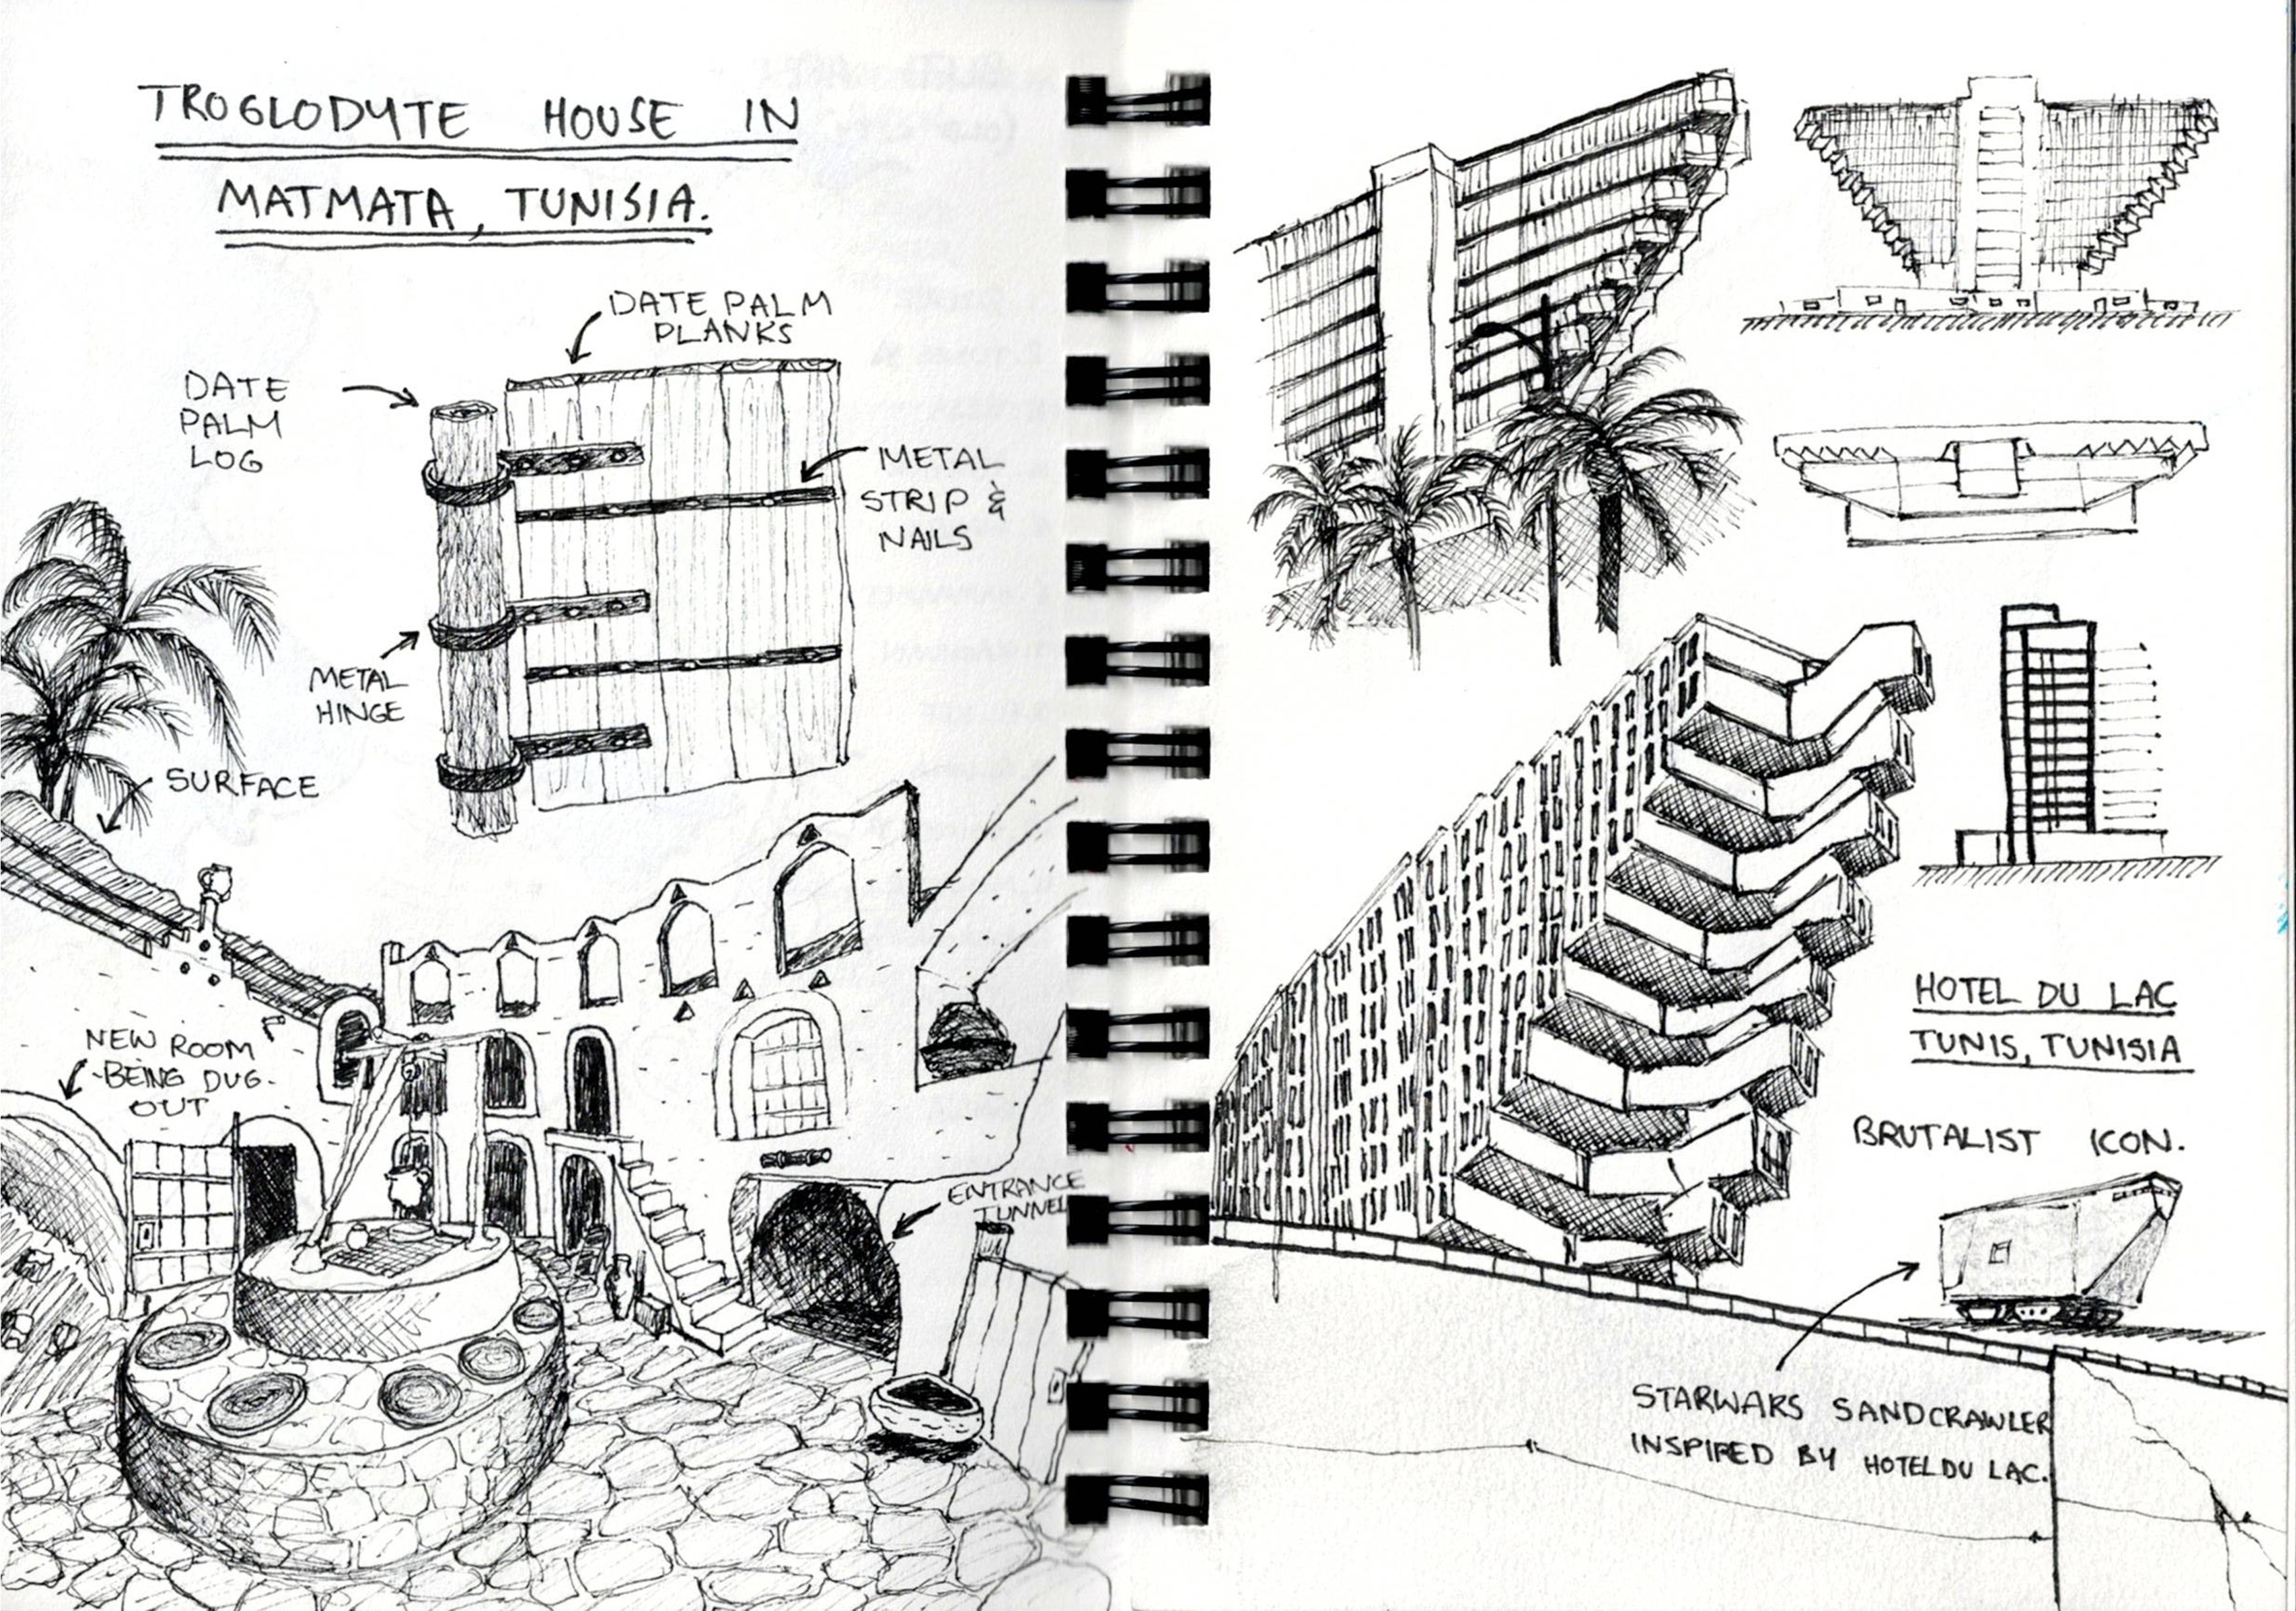 TROGLODYTE HOUSE IN
MATMATA, TUNISIA.
DATE PALM
PLANKS
DATE
PALM
LOG
METAL
STRIP &
NAILS
METAL
HINGE
SURFACE
NEW ROOM
-BEING DUG-
OUT
ENTRANCE
TUNNEL
HOTEL DU LAC
TUNIS, TUNISIA
BRUTALIST ICON.
STARWARS SANDCRAWLER
INSPIRED BY HOTEL DU LAC.